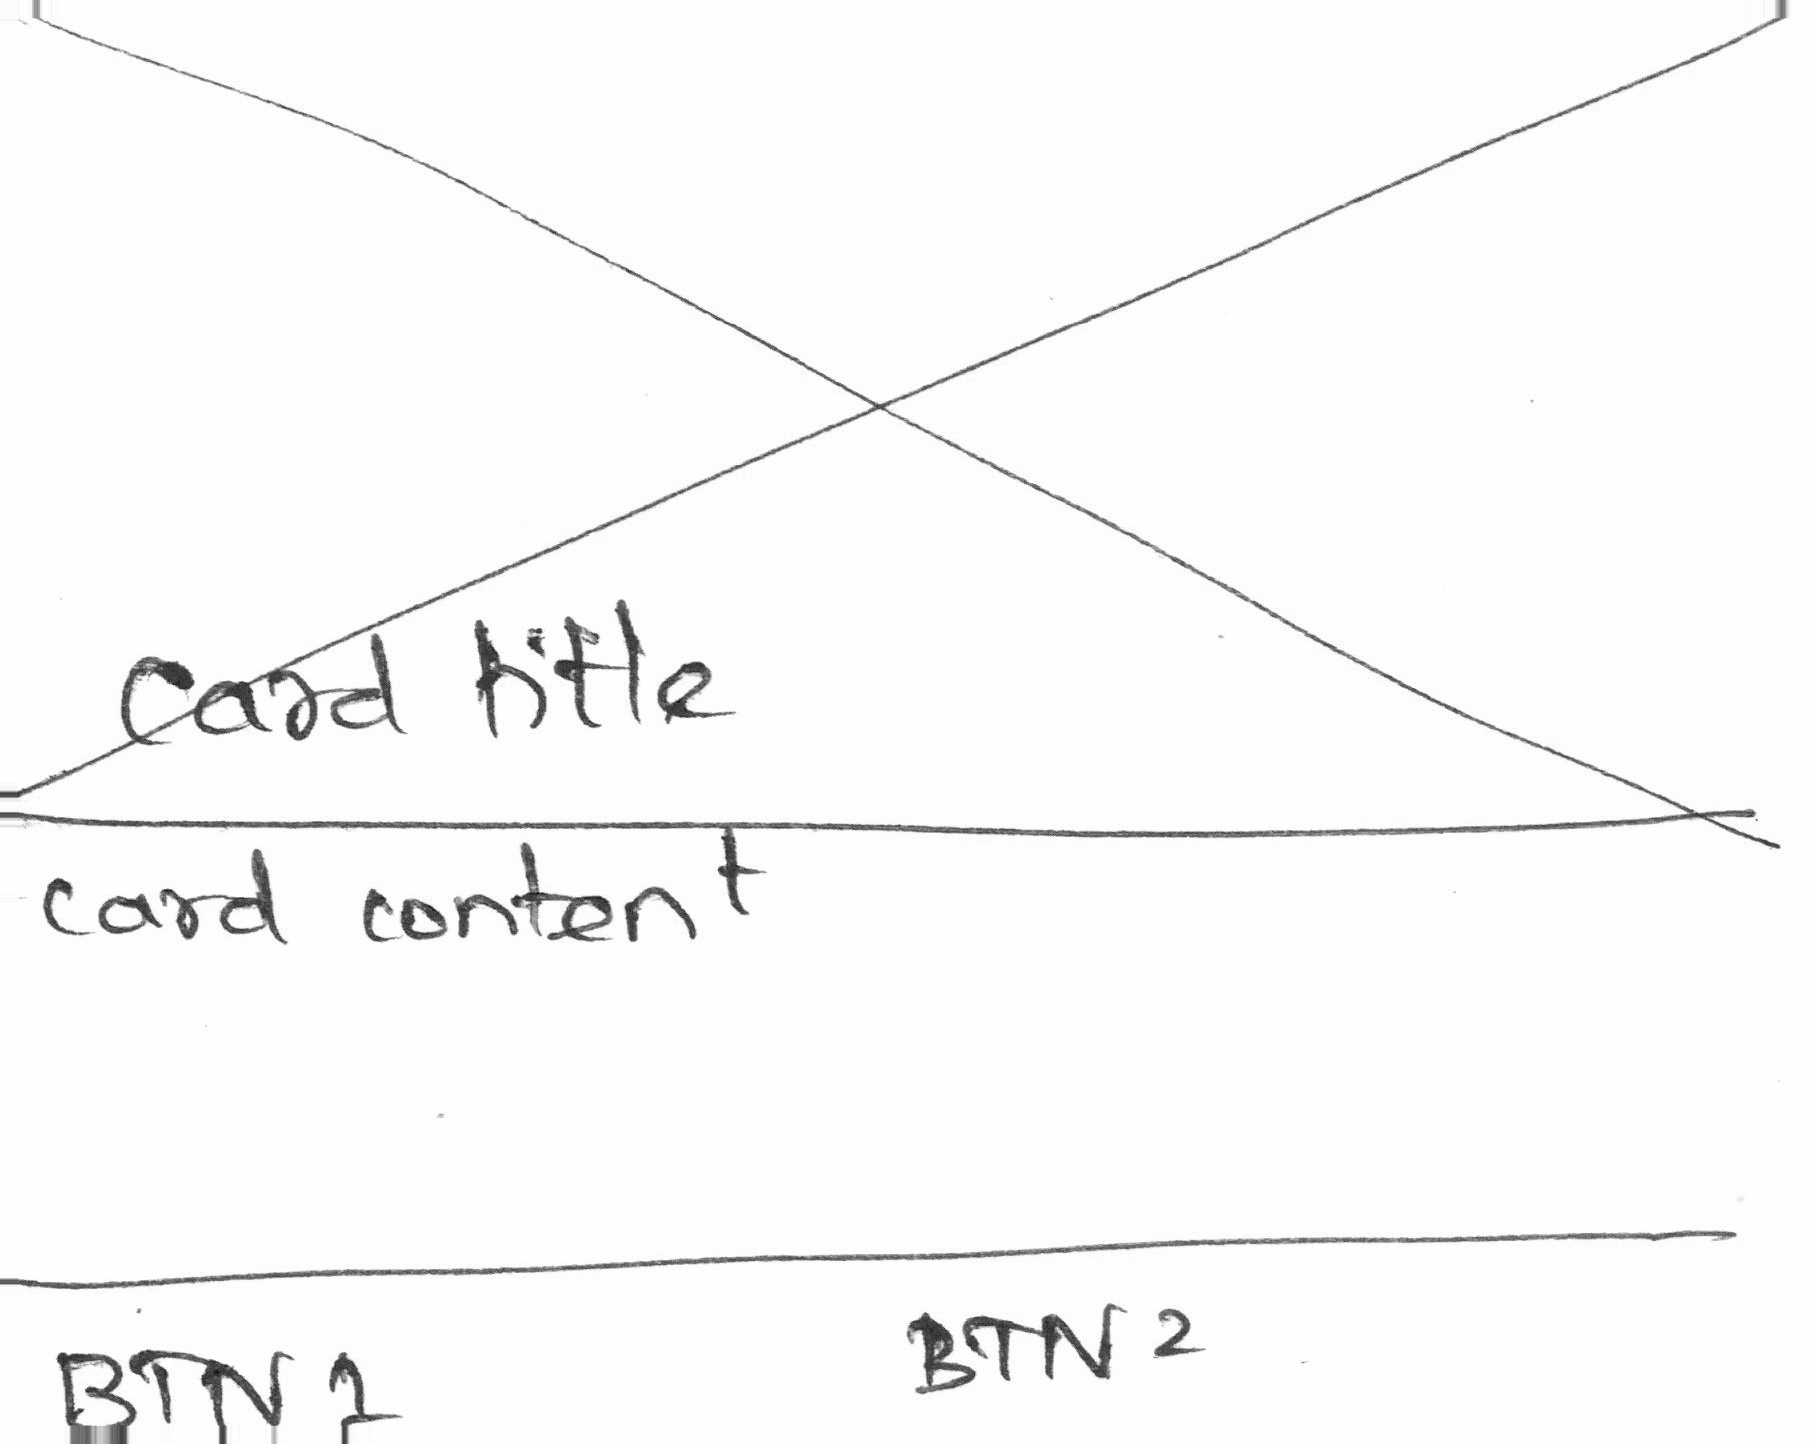 Card title
card content
BTN 1
BTN 2